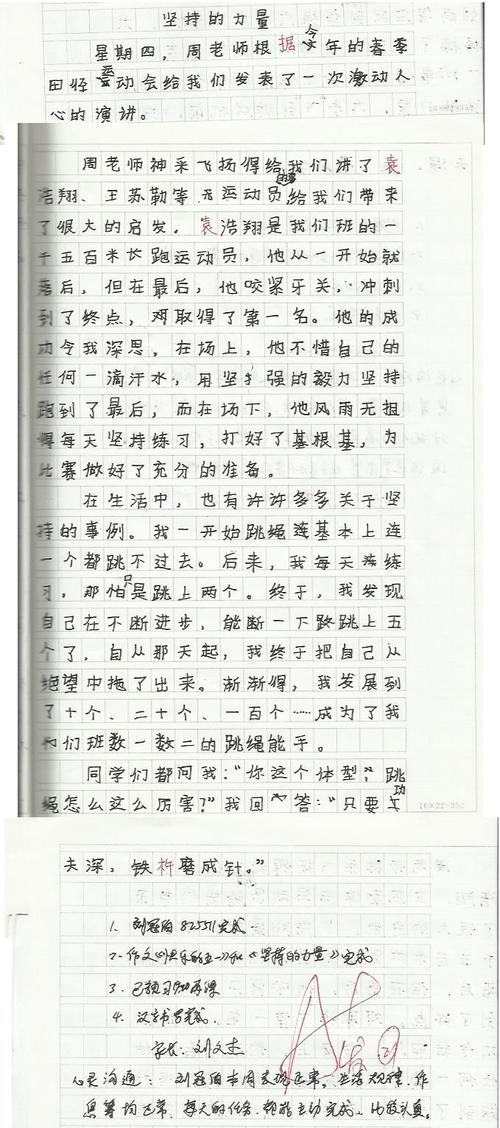 坚持的力量
星期四，周老师根据今年的春季
田径运动会给我们发表了一次激动人
心的演讲。
周老师神采飞扬得给我们讲了袁
浩翔、王苏勒等运动员的事给我们带来
了很大的启发。袁浩翔是我们班的一
千五百米长跑运动员，他从一开始就
落后，但在最后，他咬紧牙关，冲刺
到了终点，取得了第一名。他的成
功令我深思，在场上，他不惜自己的
任何一滴汗水，用坚强的毅力坚持
跑到了最后，而在场下，他风雨无担
得每天坚持练习，打好了基根基，为
比赛做好了充分的准备。
在生活中，也有许许多多关于坚
持的事例。我一开始跳绳连基本上连
一个都跳不过去。后来，我每天练
习，那怕只是跳上两个。终于，我发现
自己在不断进步，能断一下跳上五
个了，自从那天起，我终于把自己从
绝望中拖了出来。渐渐得，我发展到
了十个、二十个、一百个……成为了我
们们班数一数二的跳绳能手。
同学们都问我：“你这个体型，跳
绳怎么这么厉害？”我回答：“只要功
16×22=352
夫深，铁杵磨成针。”
1. 刘冠伯 完成
2. 作文《快乐的五一》和《坚持的力量》完成
3. 已预习
4. 汉字书写完成.
家长：刘文杰
心灵沟通：刘冠伯本周表现正常，生活规律，作
息等均正常，每天的任务都能主动完成，比较认真。
A+
优